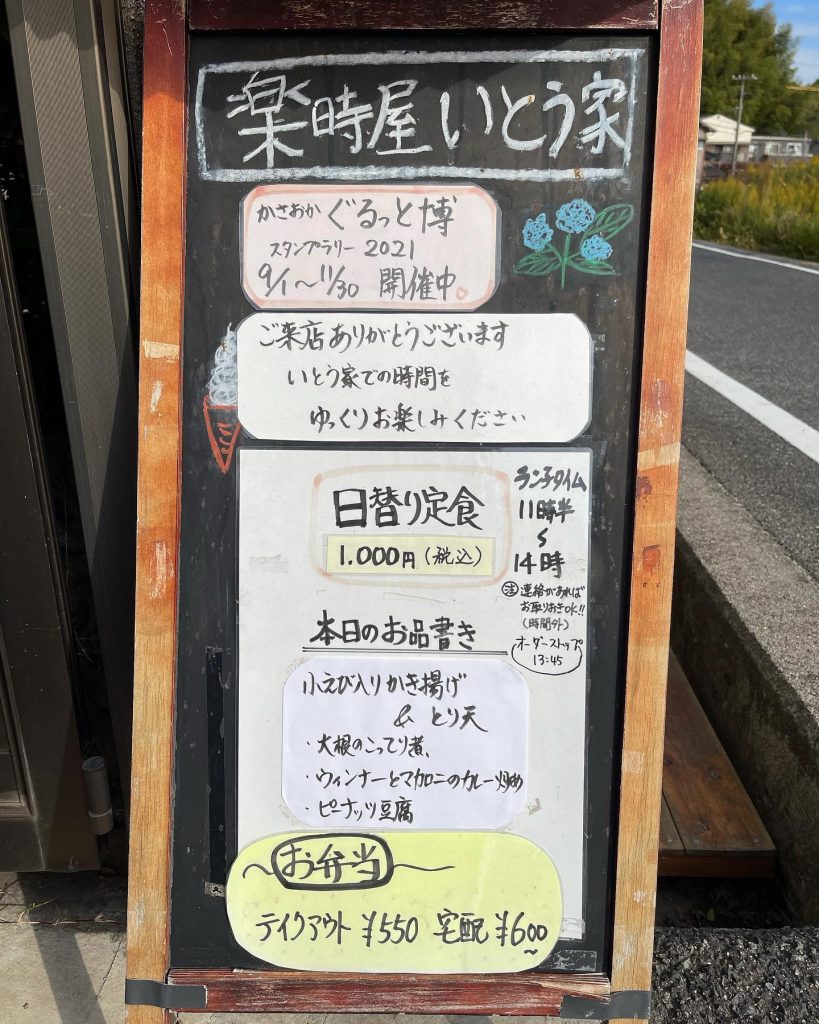 楽時屋 いとう家
かさおか ぐるっと博
スタンプラリー 2021
9/1〜11/30 開催中。
ご来店ありがとうございます
いとう家での時間を
ゆっくりお楽しみください
日替り定食
1.000円(税込)
ランチタイム
11時半
〜
14時
注 連絡があれば
お取りおきok!!
(時間外)
オーダーストップ
13:45
本日のお品書き
小えび入りかき揚げ
& とり天
・大根のこってり煮、
・ウィンナーとマカロニのカレー炒め
・ピーナッツ豆腐
〜お弁当〜
テイクアウト ¥550 宅配 ¥600〜